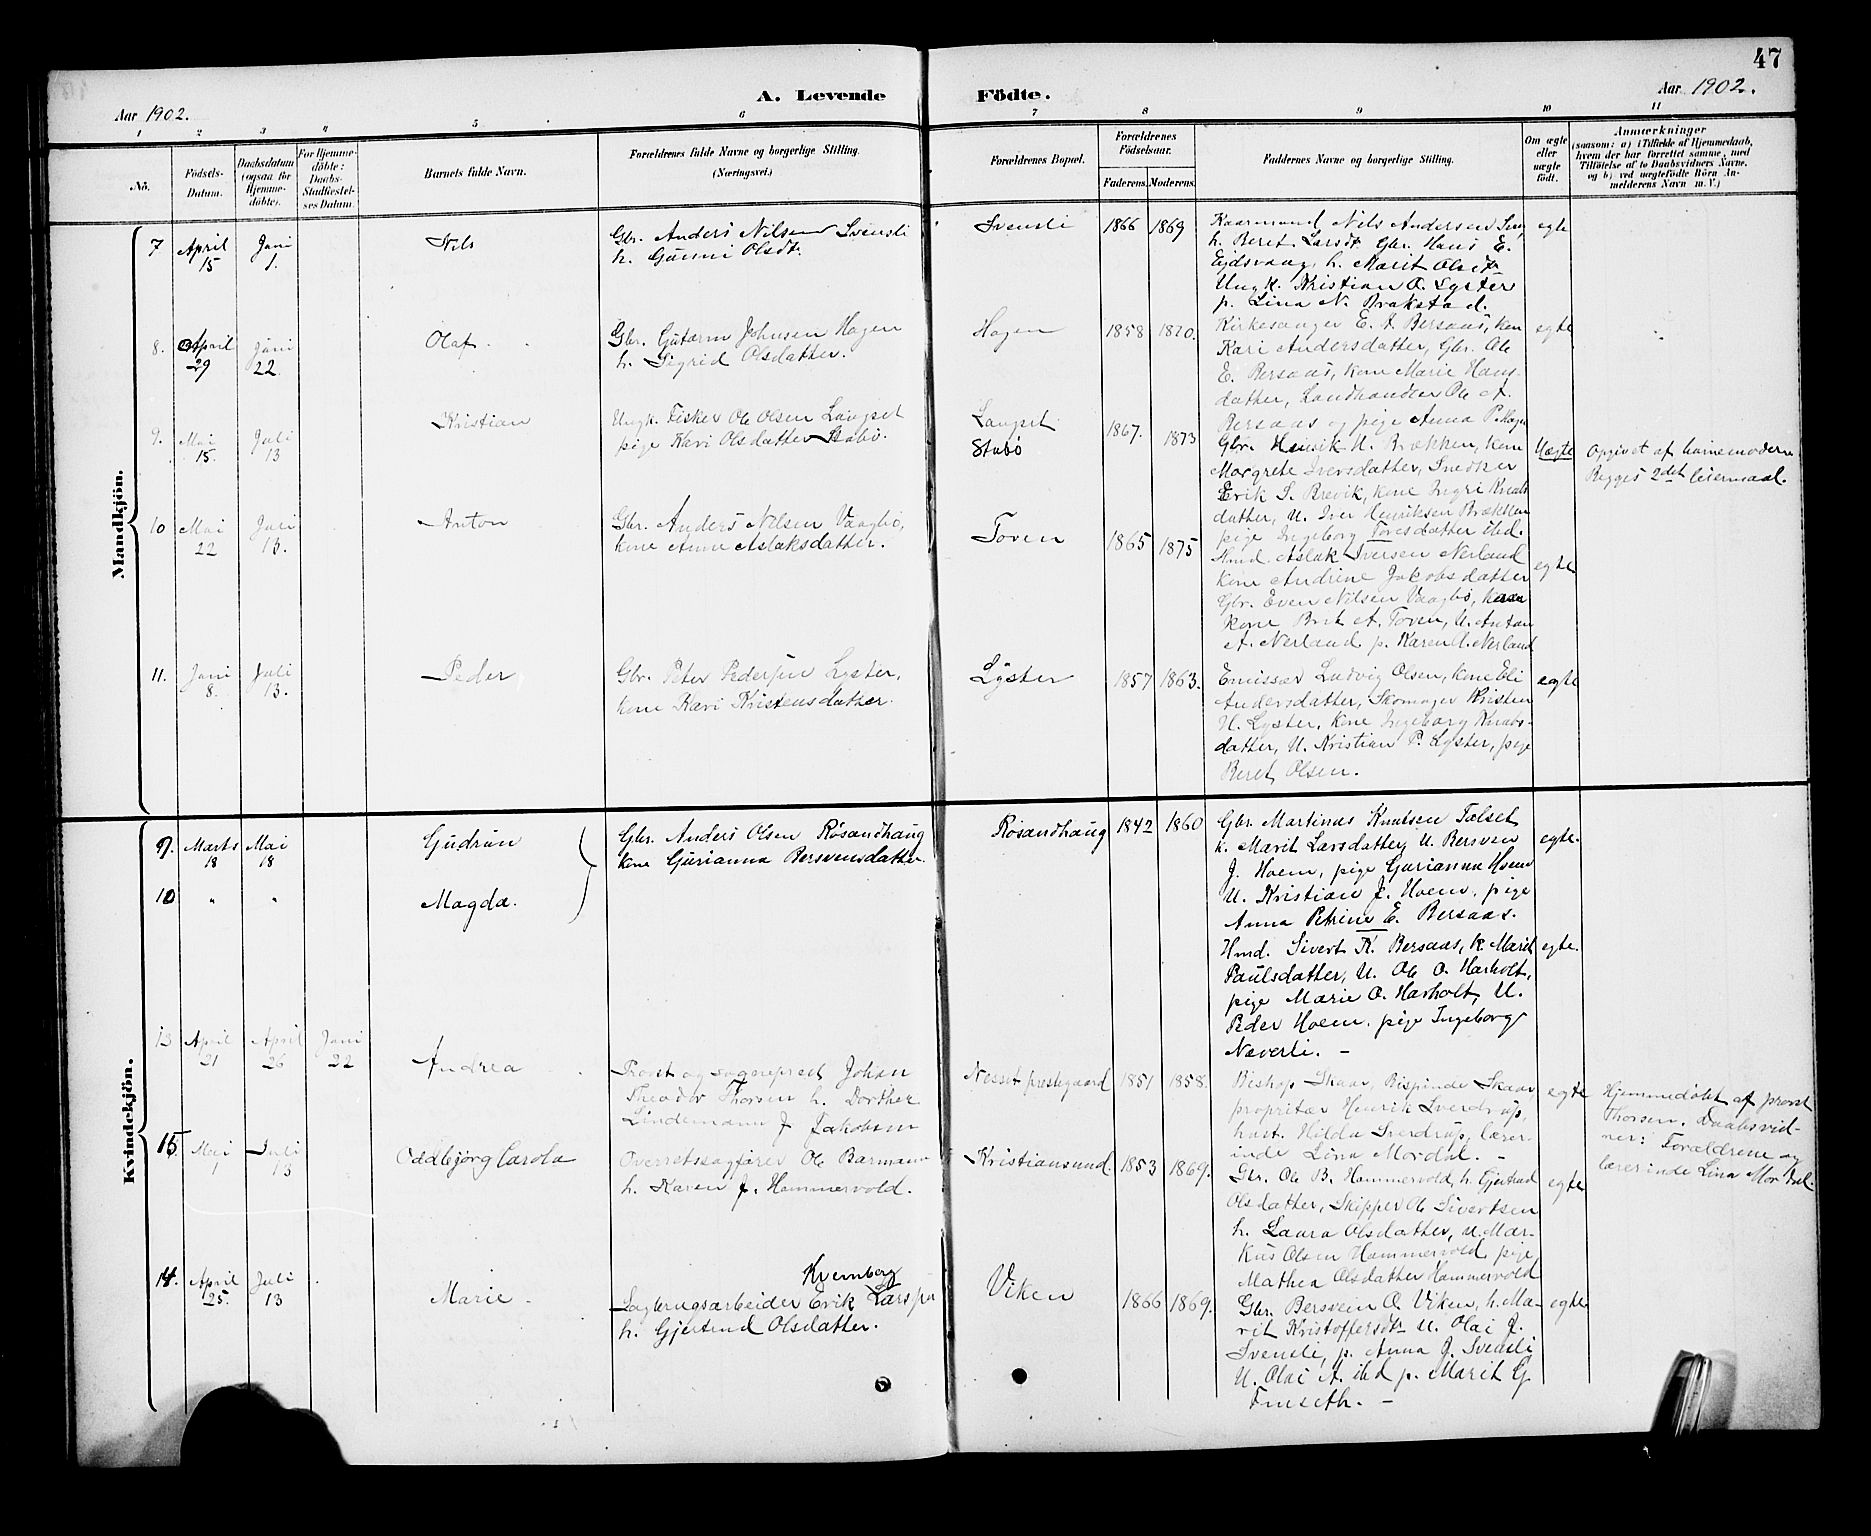 47
Aar 1902.
A. Levende Födte.
Aar 1902.
1 2 3 4 5 6 7 8 9 10 11
No.
Födsels-
Datum.
Daabsdatum
(ogsaa for
Hjemme-
döbte).
For Hjemme-
döbte:
Daabs-
Stadfæstel-
ses Datum.
Barnets fulde Navn.
Forældrenes fulde Navne og borgerlige Stilling.
(Næringsvei.)
Forældrenes Bopæl.
Forældrenes
Födselsaar.
Faderens. Moderens.
Faddernes Navne og borgerlige Stilling.
Om ægte
eller
uægte
födt.
Anmærkninger
(saasom: a) i Tilfælde af Hjemmedaab,
hvem der har forrettet samme, med
Tilföielse af to Daabsvidners Navne,
og b) ved uægtefödte Börn An-
melderens Navn m. V.)
Mandkjön.
7 April 15 Juni 1. Nils
Gbr. Anders Nilsen Svensli
h. Gunni Olsdt.
Svensli 1866 1869
Kaarmand Nils Andersen
h. Beret Larsdt. Gbr. Hans E.
Eidsvaag, h. Marit Olsdtr
Ungk. Kristian O. Lyster
p. Lina N. Brakstad.
egte
8. April 29 Juni 22. Olaf
Gbr. Gutorm Johnsen Hagen
h. Sigrid Olsdatter.
Hagen 1858 1820.
Kirkesanger E. A. Bersaas, kone
Kari Andersdatter, Gbr. Ole
E. Bersaas, kone Marie Hans-
datter, Landhandler Ole A.
Bersaas og pige Anna P.
egte
9. Mai 15. Juli 13 Kristian
Ungk. Fisker Ole Olsen Langset
pige Kari Olsdatter Stubö.
Langset
Stubö
1867. 1873
Gbr. Henrik U. Brækken, kone
Margrete Iversdatter, Snedker
Erik S. Brevik, kone Ingri Knuts
datter, U. Iver Henriksen Brækken
pige Ingeborg Toresdatter ibid.
Uægte
Opgivet af barnemoderen
Begges 2det leiermaal.
10 Mai 22 Juli 13. Anton
Gbr. Anders Nilsen Vaagbö,
kone Anne Aslaksdatter.
Toven 1865 1875
Hmd. Aslak Iversen Nerland
kone Andrine Jakobsdatter
Gbr. Even Nilsen Vaagbö,
kone Brit A. Toven, U. Anton
A. Nerland p. Karen A. Nerland
egte
11. Juni 8. Juli 13. Peder
Gbr. Peter Pedersen Lyster,
kone Kari Kristensdatter.
Lyster 1857 1863.
Emissær Ludvig Olsen, kone Eli
Andersdatter, Skomager Kristen
U. Lyster, kone Ingeborg Knuts-
datter, U. Kristian P. Lyster, pige
Beret Olsen.
egte
Kvindekjön.
9. Marts 18 Mai 18 Gudrun
Gbr. Anders Olsen Rösandhaug
kone Gurianna Bersvensdatter.
Rösandhaug 1842 1860
Gbr. Martinus Knutsen Tælset
k. Marit Larsdatter, U. Bersven
J. Hoem, pige Gurianna Hoem
U. Kristian J. Hoem, pige
Anna Petrine E. Bersaas.
egte.
10 " " Magda.
Hmd. Sivert K. Bersaas, k. Marit
Paulsdatter, U. Ole O. Harholt,
pige Marie O. Harholt, U.
Peder Hoem, pige Ingeborg
Næverli. -
egte.
13 April 21 April 26 Juni 22 Andrea
Provst og sogneprest Johan
Theodor Thorsen h. Dorthea
Lindemann f. Jakobsen
Nesset prestegaard 1851 1858.
Biskop Skaar, Bispinde Skaar
propritær Henrik Sverdrup,
hust. Hilda Sverdrup, lærer-
inde Lina Mordal. -
egte
Hjemmedöbt af provst
Thorsen. Daabsvid-
ner: Forældrene og
lærerinde Lina Mordal.
15. Mai 1 Juli 13 Oddbjörg Carola
Overretssagförer Ole Barmann
h. Karen J. Hammervold.
Kristiansund. 1853 1869.
Gbr. Ole B. Hammervold, h. Gjertrud
Olsdatter, Skipper Ole Sivertsen
h. Laura Olsdatter, U. Mar-
kus Olsen Hammervold, pige
Mathea Olsdatter Hammervold
egte
14. April 25. Juli 13 Marie
Kvernberg
Sagbrugsarbeider Erik Larsen
h. Gjertrud Olsdatter.
Viken 1866 1869.
Gbr. Bersvein O. Viken, h. Ma-
rit Kristoffersdtr U. Olai J.
Svensli, p. Anna J. Svensli
U. Olai A. ibid p. Marit G
Finseth. -
egte